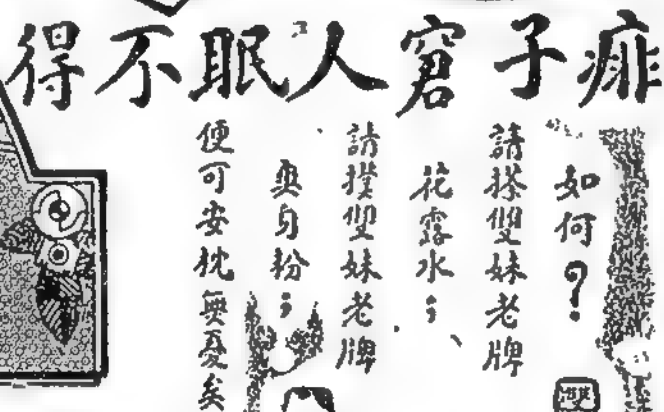 痱子窘人眠不得
如何？
請搽雙妹老牌
花露水；
請撲雙妹老牌
爽身粉；
便可安枕無憂矣
雙